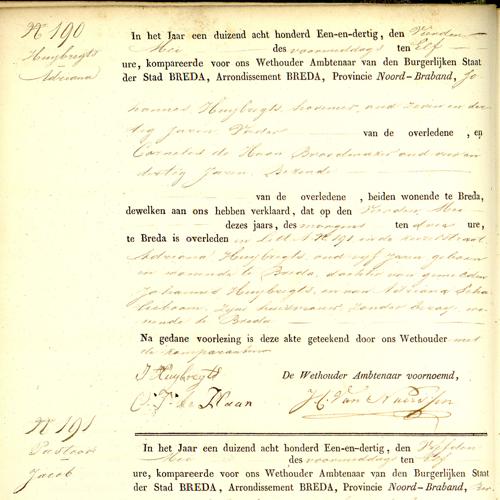 No 190
Huybregts
Adriana
In het Jaar een duizend acht honderd Een-en-dertig, den Vierden
Mei des voormiddags ten Elf
ure, kompareerde voor ons Wethouder Ambtenaar van den Burgerlijken Staat
der Stad BREDA, Arrondissement BREDA, Provincie Noord-Braband, Jo
hannes Huybregts, oud Zeven en der
tig Jaren Vader van de overledene, en
Cornelis de Haan Broodmaker oud
dertig Jaren, Bekende
van de overledene, beiden wonende te Breda,
dewelken aan ons hebben verklaard, dat op den Vierden Mei
dezes jaars, des morgens ten drie ure,
te Breda is overleden in Lett No 191 in de
Adriana Huybregts, oud vijf Jaren geboren
en wonende te Breda, dochter van gemelden
Johannes Huybregts, en van Adriana
Zijne huisvrouw, zonder beroep wo
nende te Breda
Na gedane voorlezing is deze akte geteekend door ons Wethouder met
de komparanten
J Huybregts
De Wethouder Ambtenaar voornoemd,
C. J. de Haan
No 191
Jacob
In het Jaar een duizend acht honderd Een-en-dertig, den Vijfden
Mei des voormiddags ten
ure, kompareerde voor ons Wethouder Ambtenaar van den Burgerlijken Staat
der Stad BREDA, Arrondissement BREDA, Provincie Noord-Braband,